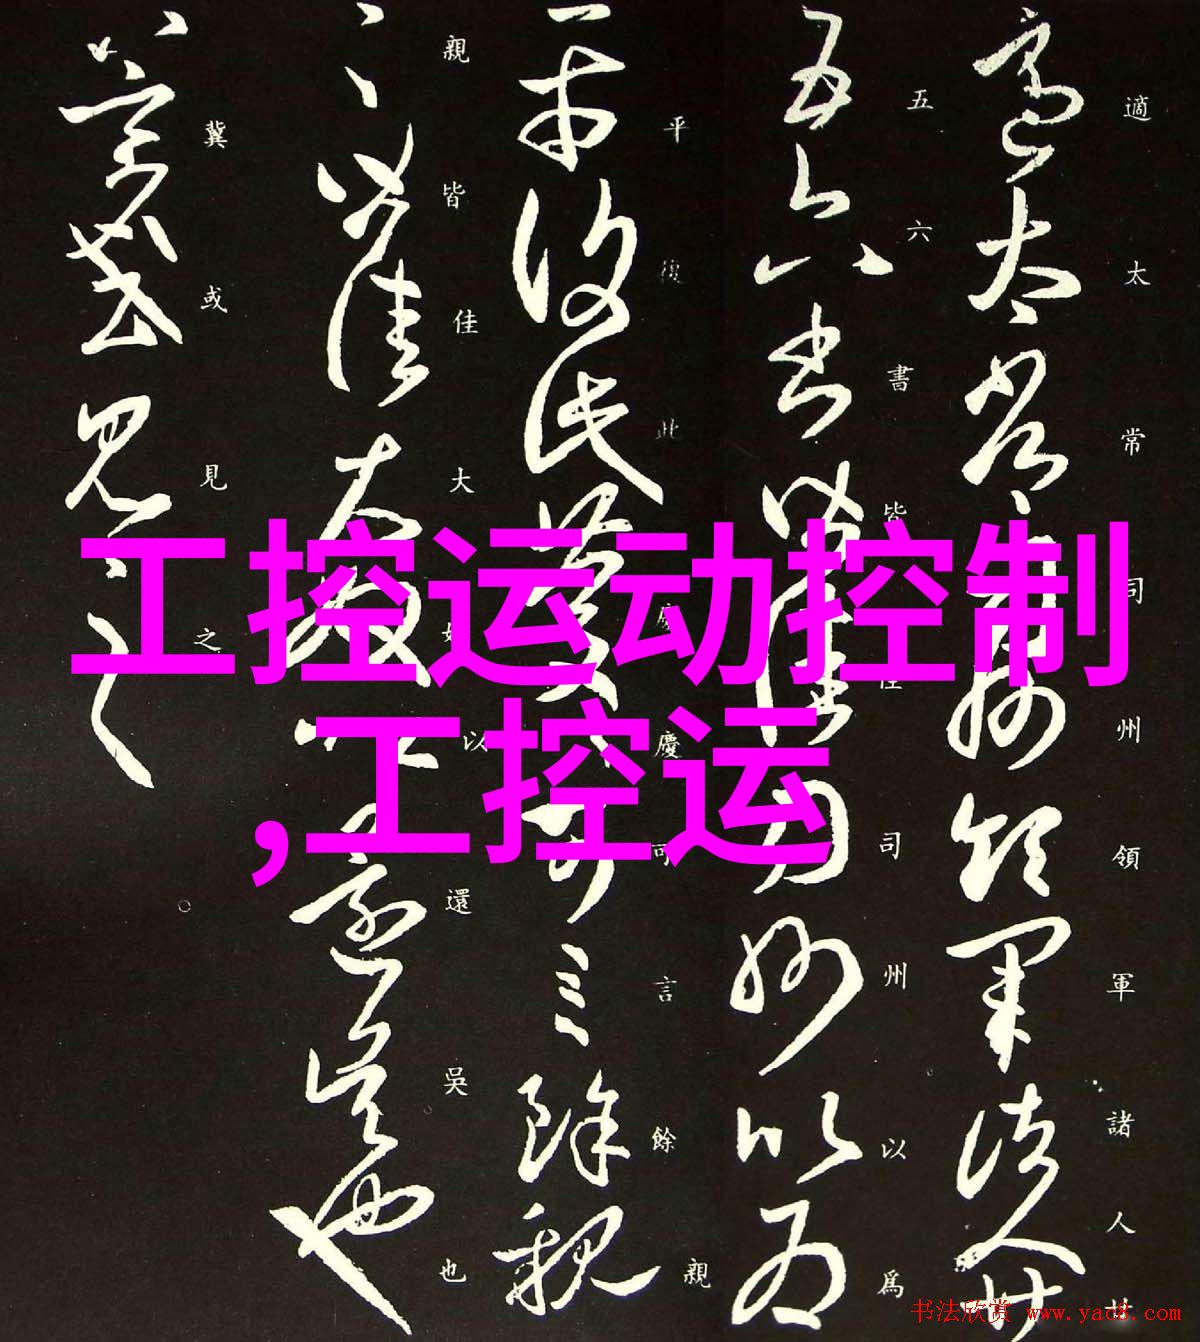 適太常司州領軍諸人廿
五六書皆佳司州以為
平復此慶慶可言餘親
親皆佳大奴以還吳也
冀或見之
工控运动控制
,工控运
书法欣赏 www.yac8.com